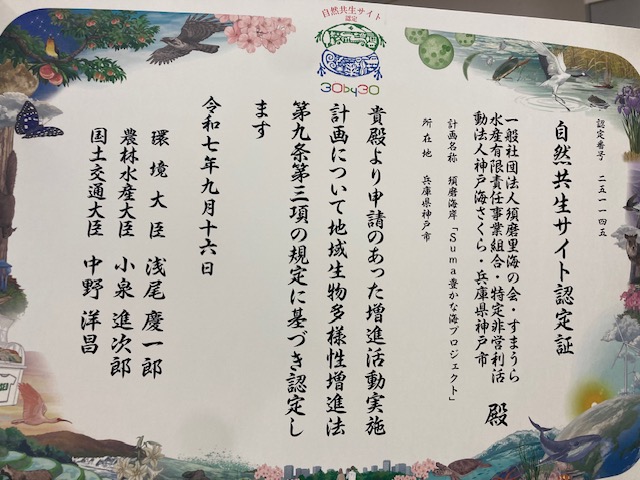 自然共生サイト
認定
30by30
認定番号　二五一一四五
自然共生サイト認定証
一般社団法人須磨里海の会・すまうら
水産有限責任事業組合・特定非営利活
動法人神戸海さくら・兵庫県神戸市　殿
計画名称　須磨海岸「Suma豊かな海プロジェクト」
所在地　兵庫県神戸市
貴殿より申請のあった増進活動実施
計画について地域生物多様性増進法
第九条第三項の規定に基づき認定し
ます
令和七年九月十六日
環境大臣　浅尾慶一郎
農林水産大臣　小泉進次郎
国土交通大臣　中野洋昌